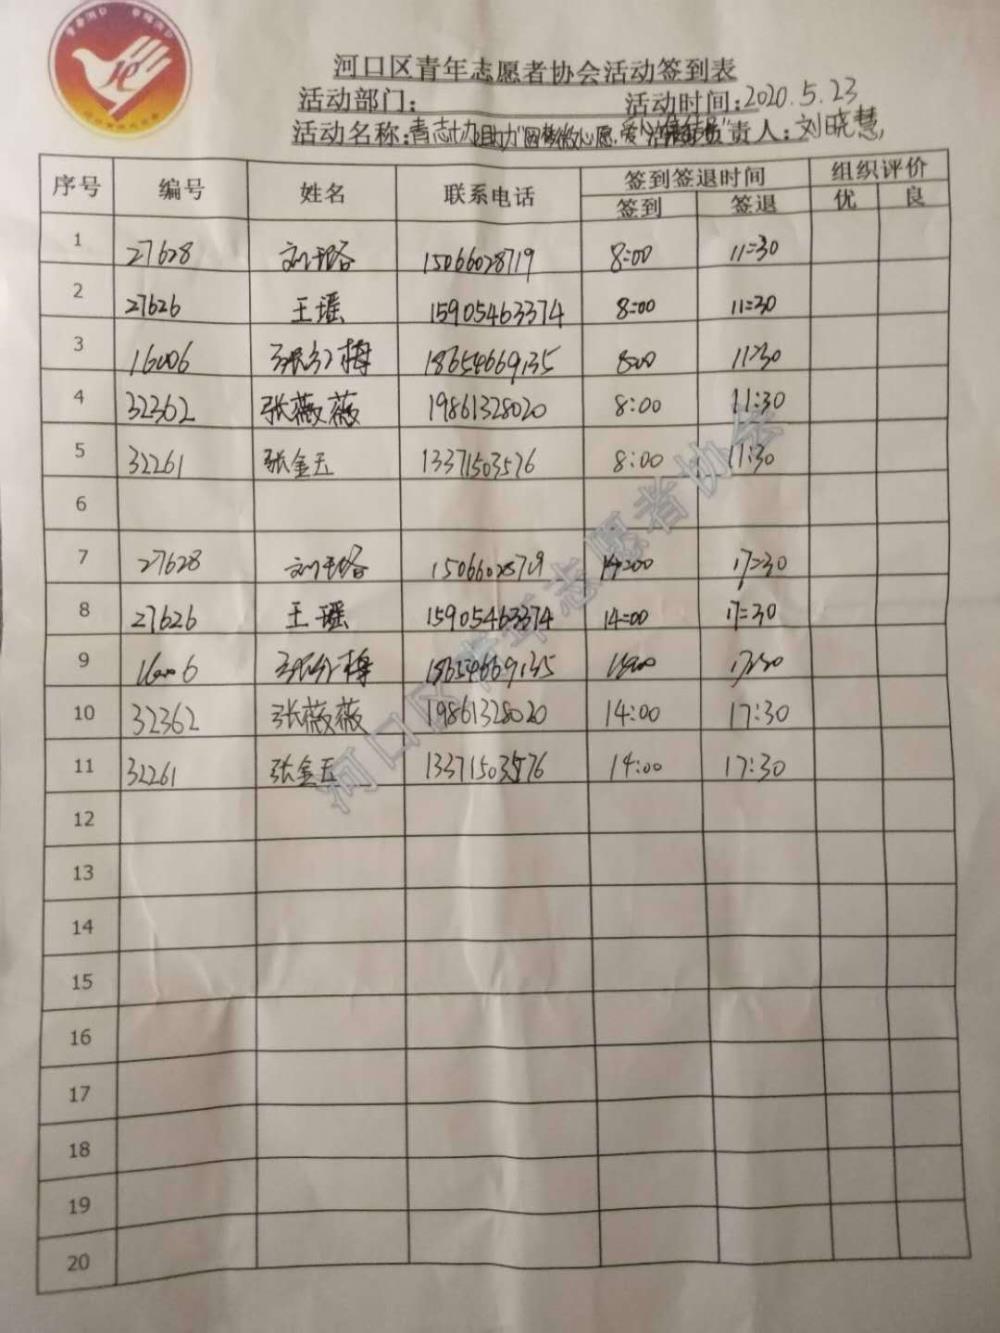 河口区青年志愿者协会活动签到表
活动部门: 活动时间:2020.5.23
活动名称:青志 助力"圆梦微心愿,爱心 责人:刘晓慧
序号 编号 姓名 联系电话 签到签退时间 组织评价
签到 签退 优 良
1 27628 15066028719 8:00 11:30
2 27626 王瑶 15905463374 8:00 11:30
3 16006 张红梅 18654669135 8:00 11:30
4 32362 张薇薇 19861328020 8:00 11:30
5 32261 张金玉 13371503576 8:00 11:30
6
7 27628 15066028719 14:00 17:30
8 27626 王瑶 15905463374 14:00 17:30
9 16006 张红梅 18654669135 17:30
10 32362 张薇薇 19861328020 14:00 17:30
11 32261 张金玉 13371503576 14:00 17:30
12
13
14
15
16
17
18
19
20
河口区青年志愿者协会